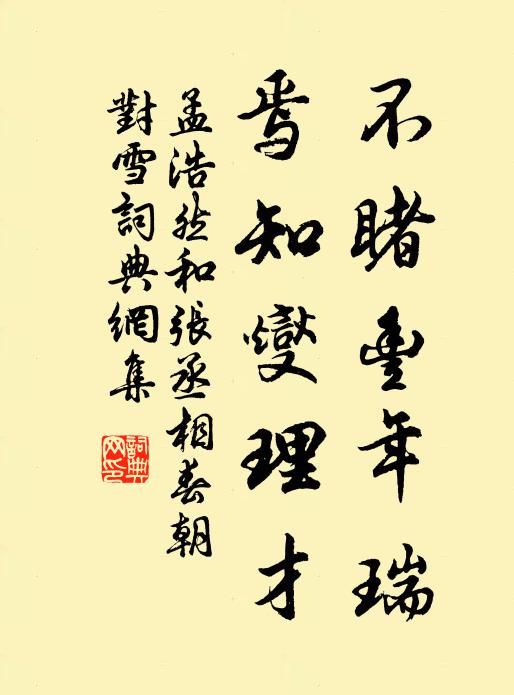 不睹豐年瑞
焉知燮理才
孟浩然和張丞相春朝
對雪詞典網集
詞典網印